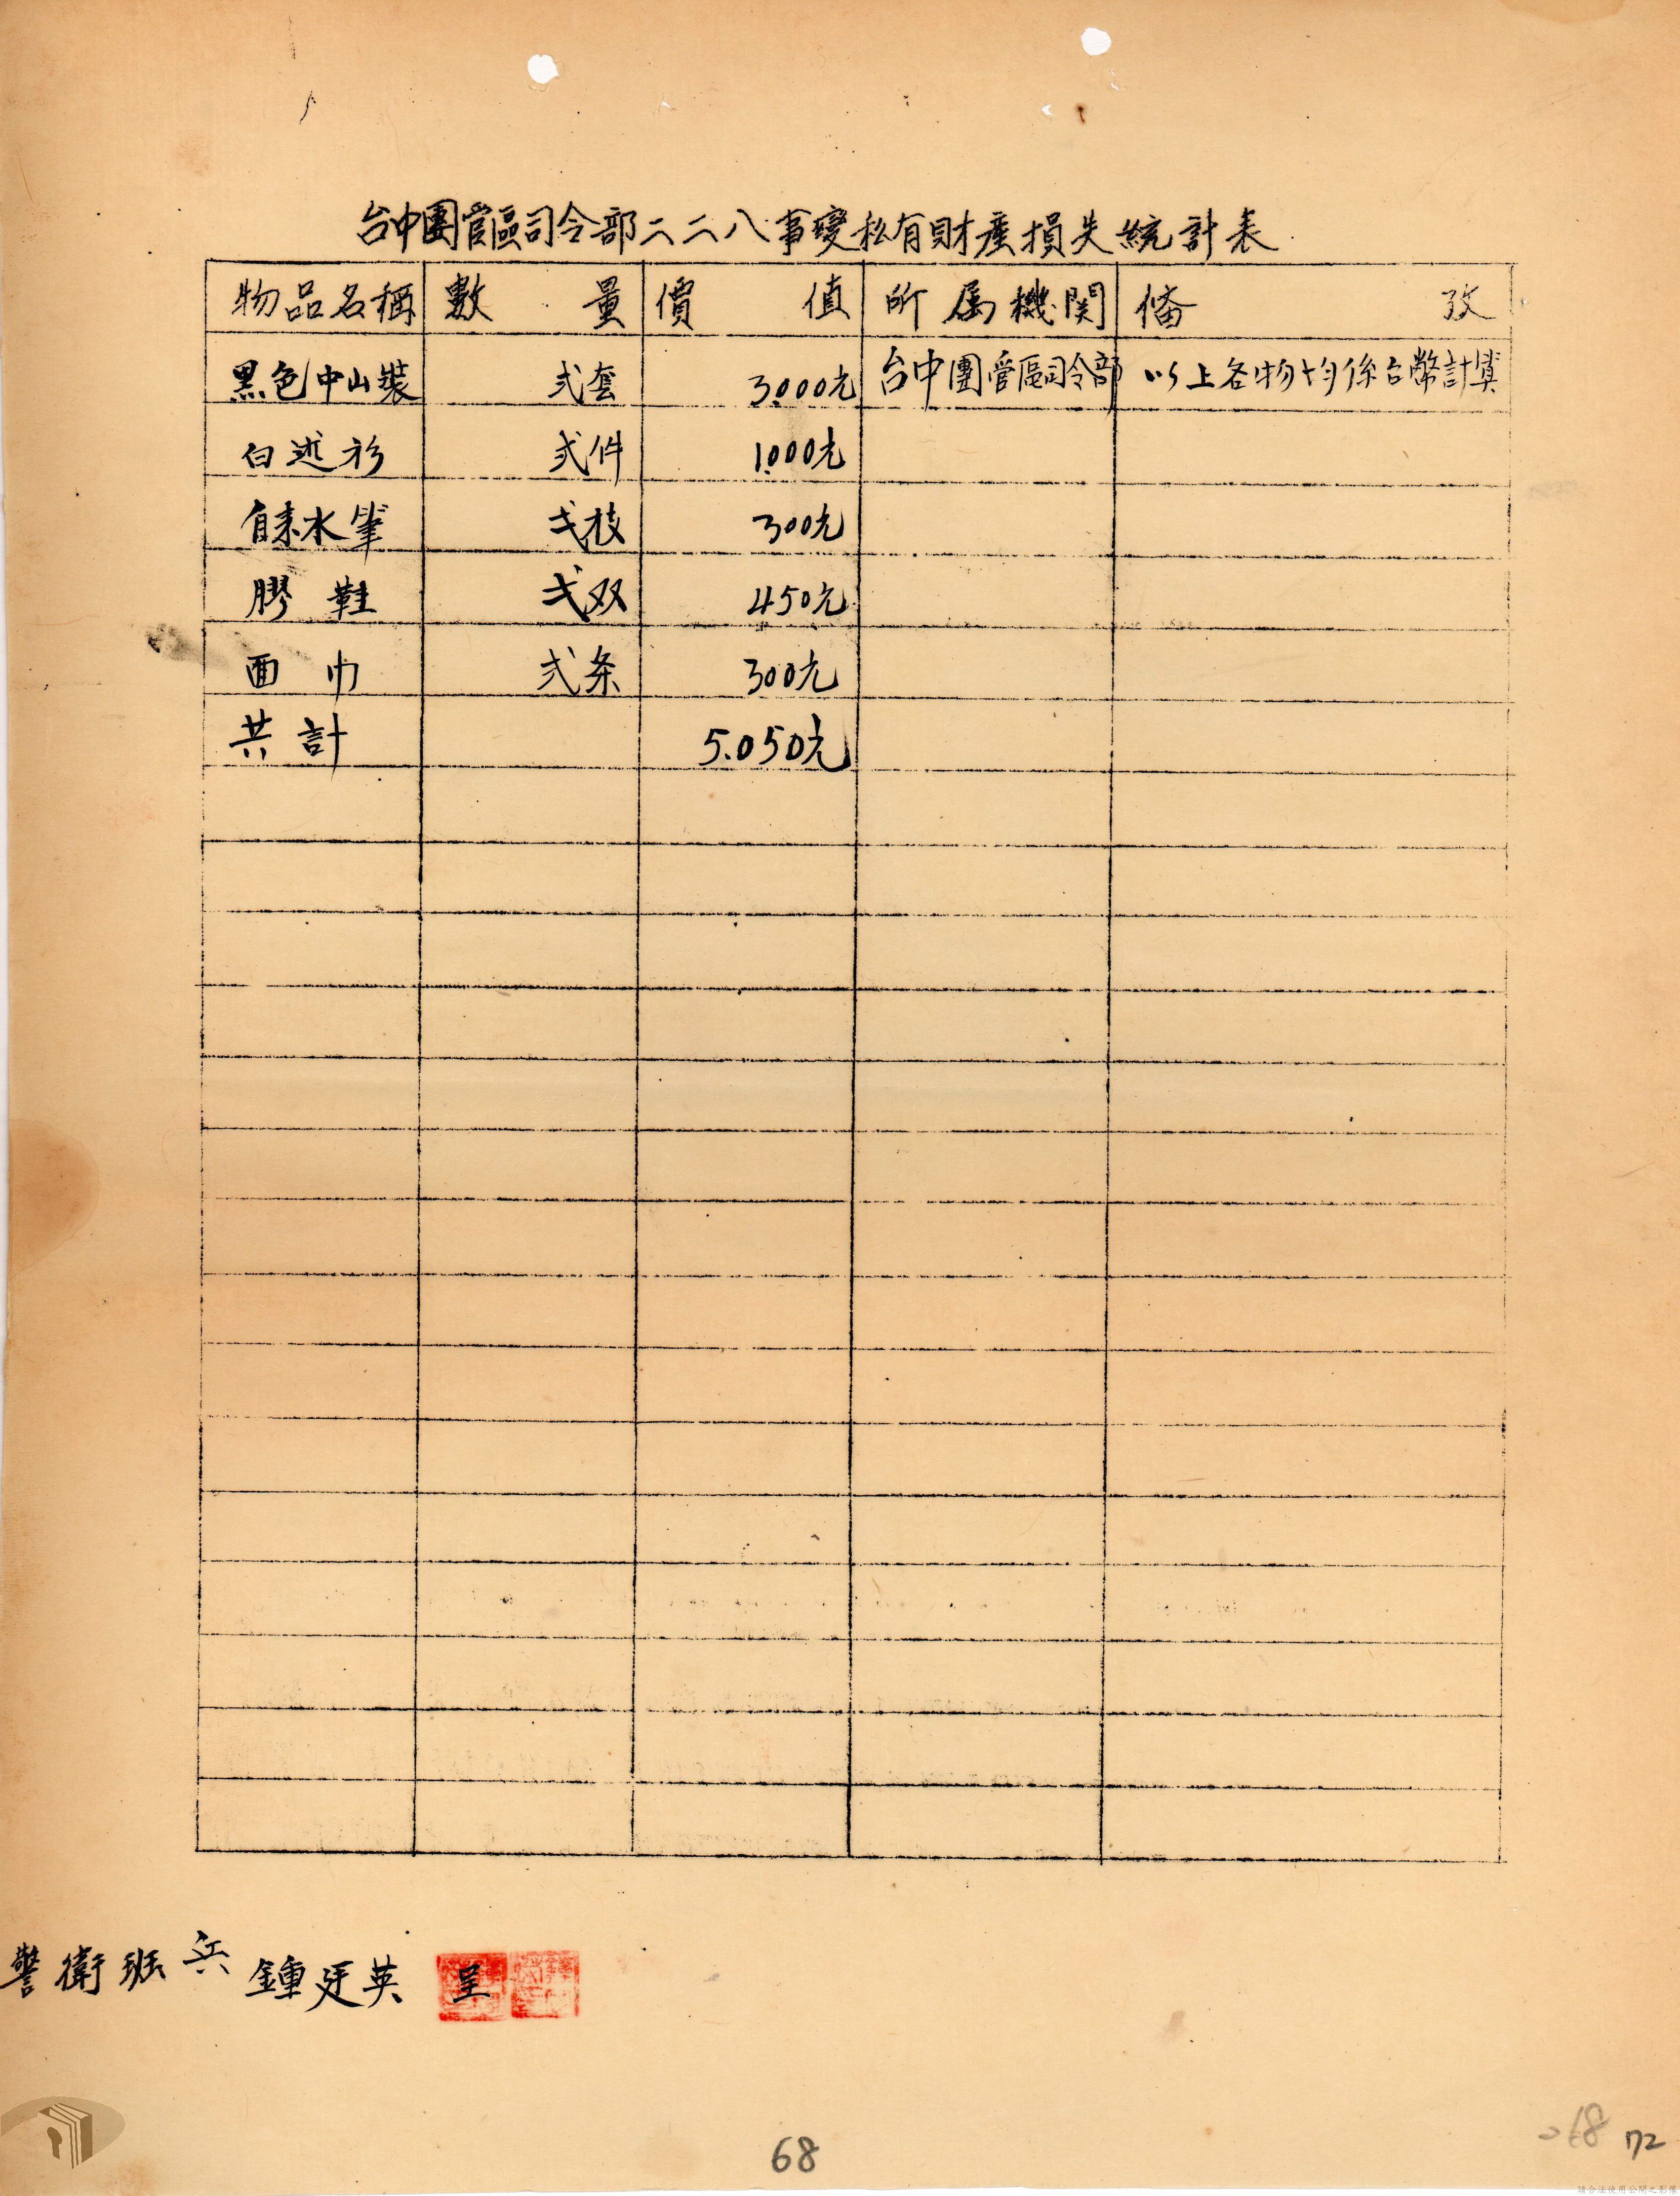 台中團管區司令部二二八事變私有財產損失統計表
物品名稱 數量 價值 所属機関 俻攷
黑色中山裝 弍套 3.000元 台中團管區司令部 以上各物均係台幣計算
白述衫 弍件 1.000元
自来水筆 弍枝 300元
膠鞋 弍双 450元
面巾 弍条 300元
共計 5.050元
警衛班兵 鍾廷英 呈
68
68 72
請合法使用公開之影像